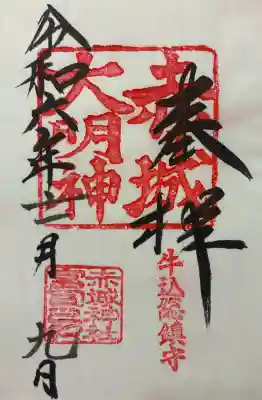 奉拝
赤城
大明神
牛込総鎮守
令和六年十一月九日
赤城神社